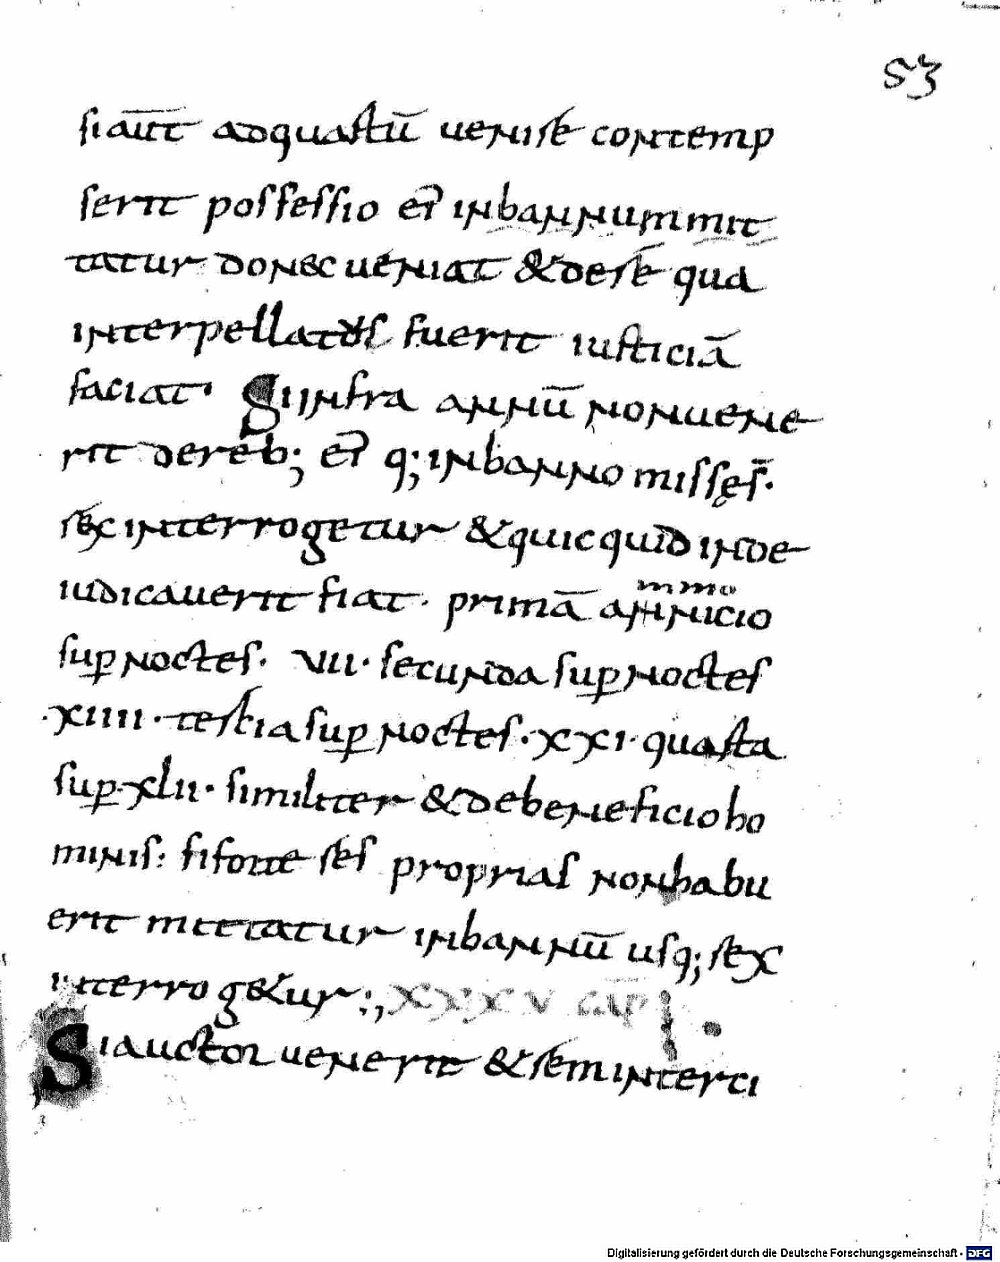 53
si aut̄ adquartū uenire contemp
serit possessio ei᷒ inbannum mit
tatur donec ueniat & dere qua
interpellatus fuerit iusticiā
faciat· Si infra annū nonuene
rit dereb; ei᷒ q; inbanno missęs̄·
rex interrogetur & quicquid inde
iudicauerit fiat· primā amnicio
mmo
sup noctes· VII· secunda sup noctes
·XIIII· tertia sup noctes·XXI· quarta
sup·xlii· similiter & debeneficio ho
minis: si forte res proprias nonhabu
erit mittatur inbannū usq; rex
interrog&ur:, XXXV CAP
Si auctor uenerit & rem interci
Digitalisierung gefördert durch die Deutsche Forschungsgemeinschaft - DFG